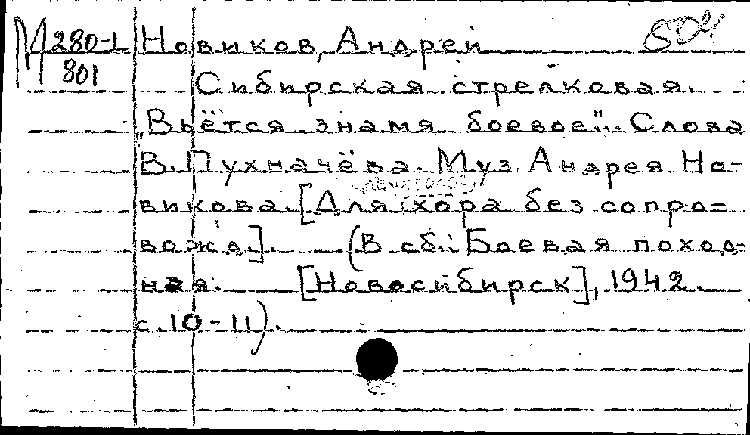 М 280-1 Новиков, Андрей
801
Сибирская стрелковая.
"Вьётся знамя боевое". Слова
В. Пухначёва. Муз. Андрея Но-
викова. [Для хора без сопро-
вожд]. (В сб.: Боевая поход-
ная. [Новосибирск], 1942.
с. 10-11).